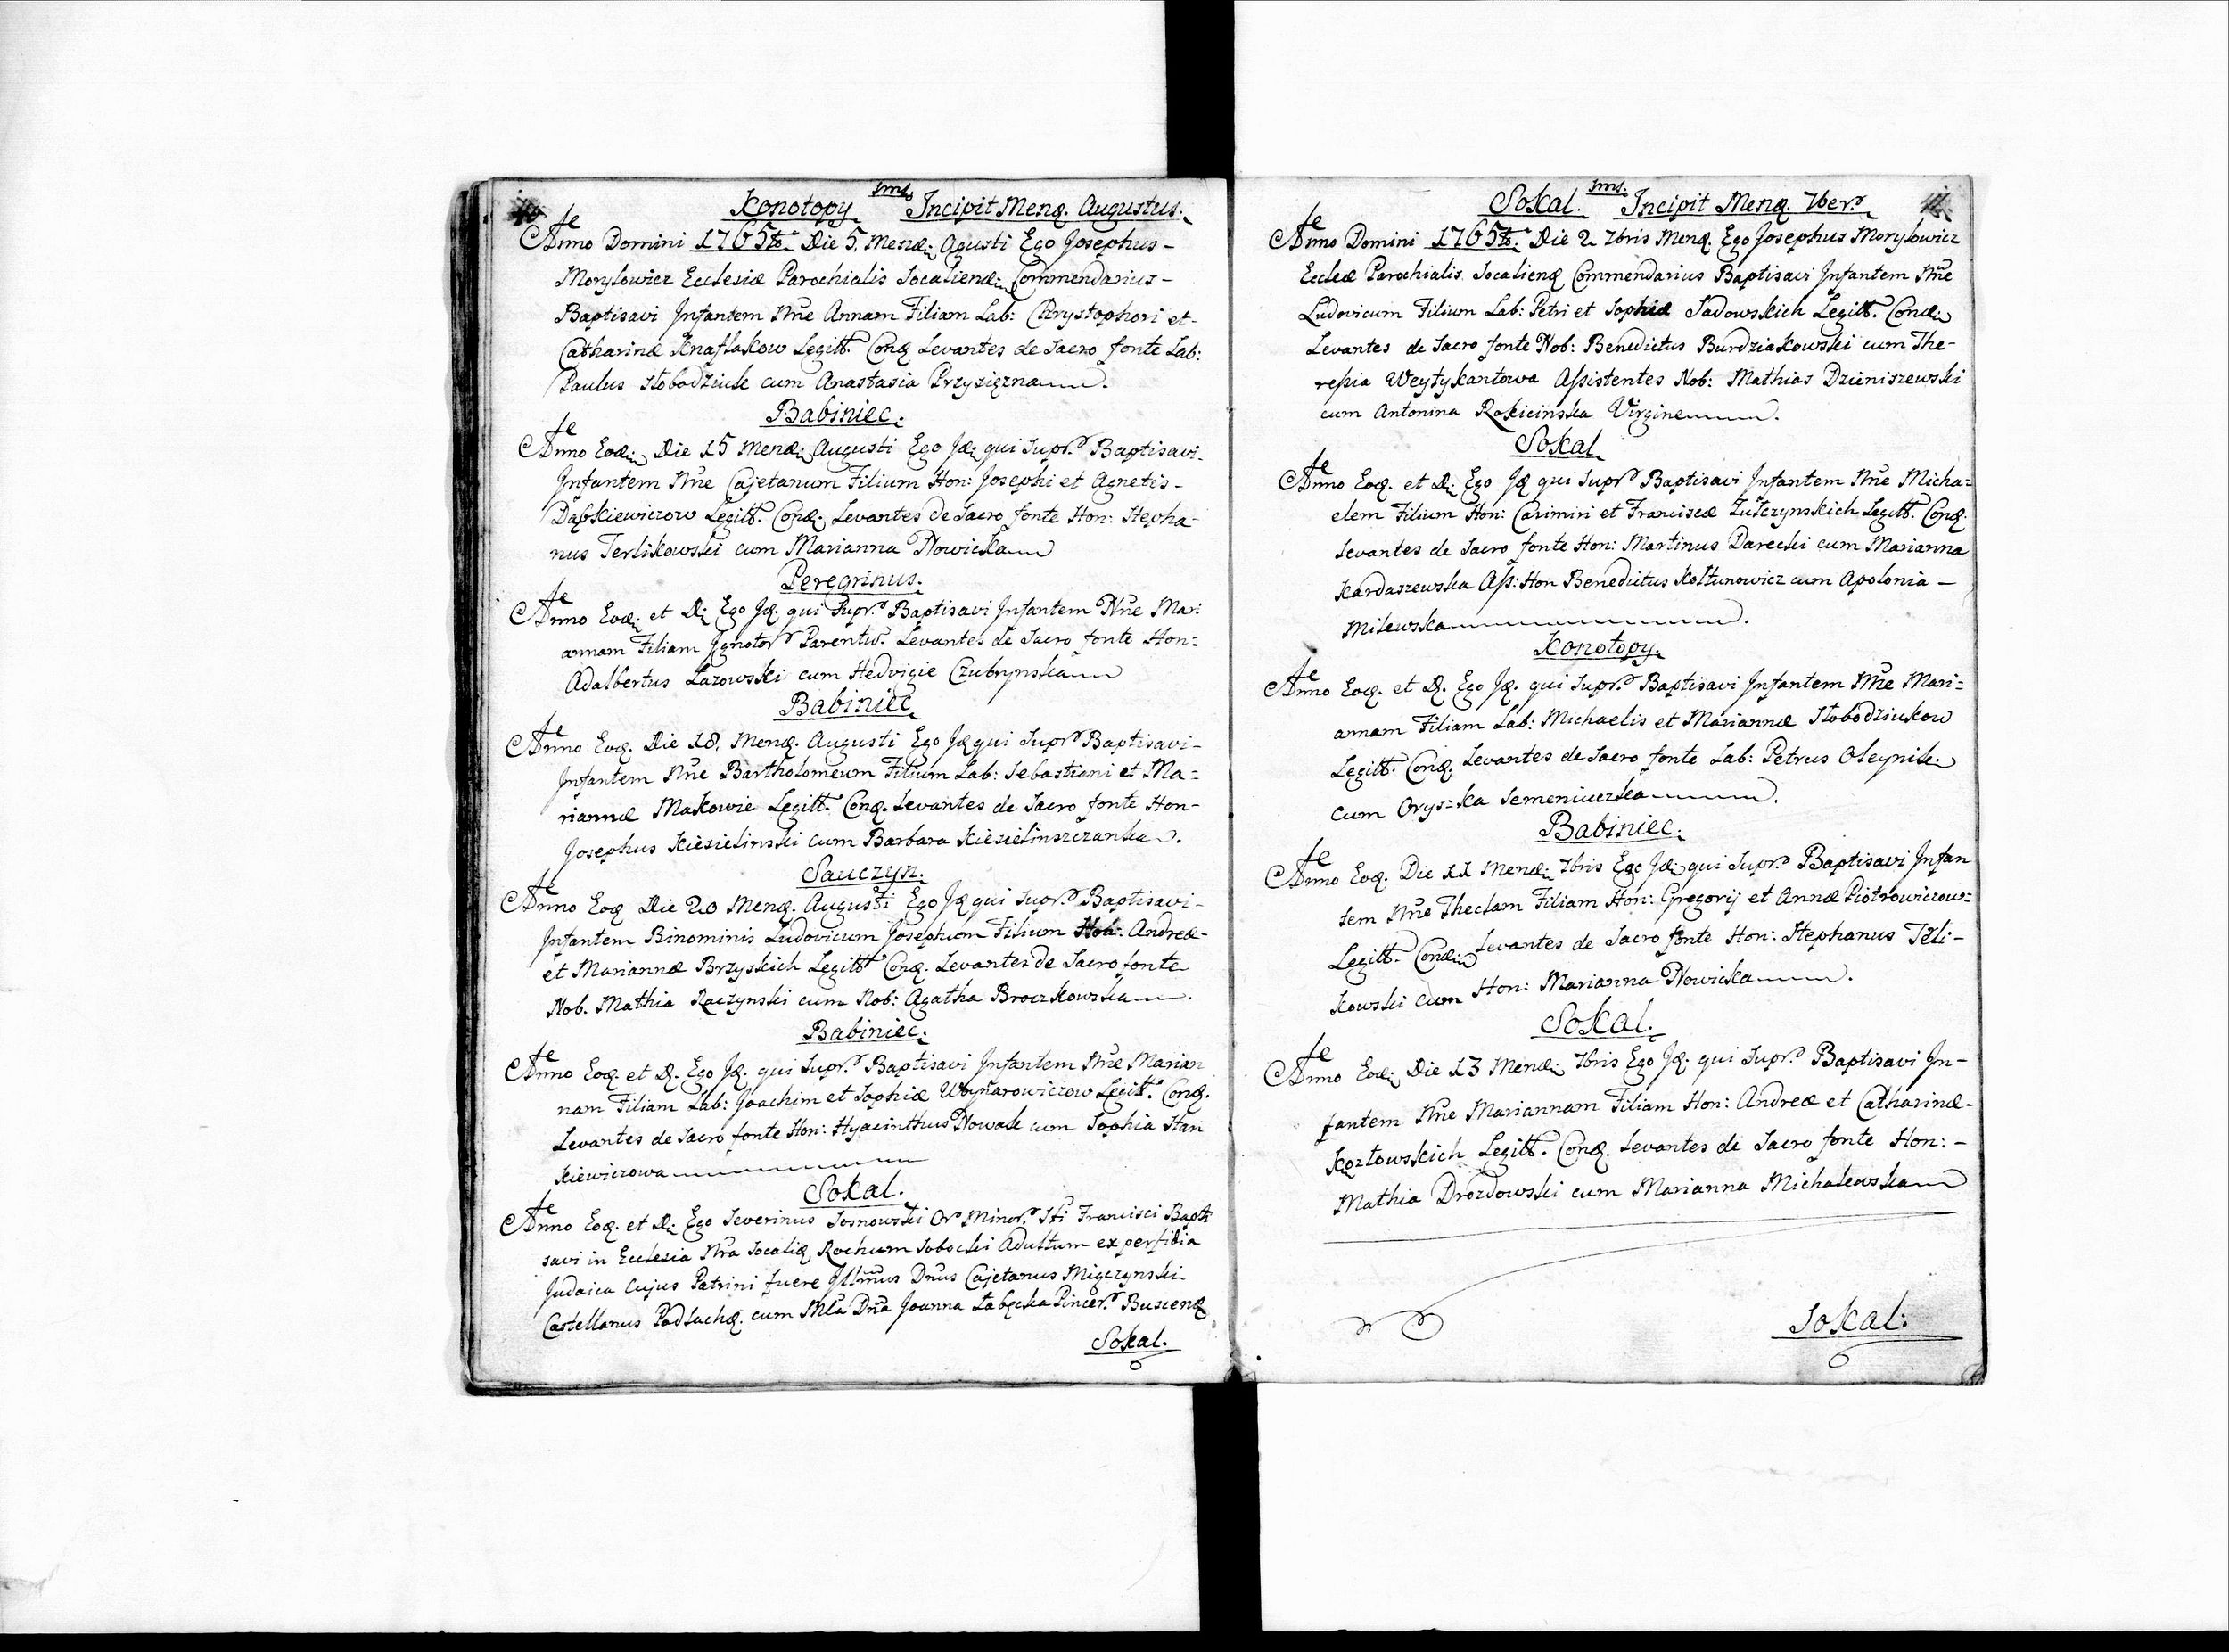 Konotopy Incipit Menq. Augustus.
Anno Domini 1765to. Die 5. Menq. Agusti Ego Josephus-
Morylowicz Ecclesiæ Parochialis Socalienq. Commendarius-
Baptisavi Infantem Nne Annam Filiam Lab: Chrystophori et-
Catharinæ Knaflakow Legitt. Conq Levantes de Sacro fonte Lab:
Paulus Słobodziuk cum Anastasia Przysięzna.
Babiniec.
Anno Eoq. Die 15 Menq. Augusti Ego Jq. qui Supr. Baptisavi-
Infantem Nne Cajetanum Filium Hon: Josephi et Agnetis-
Dąbkiewiczow Legitt. Conq. Levantes de Sacro fonte Hon: Stepha-
nus Terlikowski cum Marianna Nowicka
Peregrinus.
Anno Eoq. et D. Ego Jq. qui Supr. Baptisavi Infantem Nne Mari
annam Filiam Ignotor Parentiv. Levantes de Sacro fonte Hon:
Adalbertus Lazowski cum Hedvigie Czubrynska
Babiniec
Anno Eoq. Die 18. Menq. Augusti Ego Jq qui Supr Baptisavi-
Infantem Nne Bartholomeum Filium Lab: Sebastiani et Ma=
riannæ Makowie Legitt. Conq. Levantes de Sacro fonte Hon-
Josephus Kiesielinski cum Barbara Kiesielinszczanka.
Sauczyn.
Anno Eoq Die 20 Menq. Augusti Ego Jq qui Supr. Baptisavi-
Infantem Binominis Ludovicum Josephum Filium Andreæ-
et Mariannæ Brzyskich Legitt Conq. Levantes de Sacro fonte
Nob. Mathia Raczynski cum Nob: Agatha Broczkowska.
Babiniec.
Anno Eoq. et D. Ego Jq. qui Supr. Baptisavi Infantem Nne Marian
nam Filiam Lab: Joachim et Sophiæ Woynarowiczow Legitt. Conq.
Levantes de Sacro fonte Hon: Hyacinthus Nowak cum Sophia Stan
kiewiczowa
Sokal.
Anno Eoq. et D. Ego Severinus Sosnowski Or Minor. Sti Francisci Bapti
savi in Ecclesia Nra Socaliq Rochum Sobocki Adultum ex perfidia
Judaica Cujus Patrini fuere Illmus Dnus Cajetanus Miączynski
Castellanus Podlachq. cum Mla Dna Joanna Łabęcka Pincer. Buscenq
Sokal.
Sokal. Incipit Menq. 7ber.
Anno Domini 1765to. Die 2 7bris Menq. Ego Josephus Morylowicz
Eccleæ Parochialis Socalienq Commendarius Baptisavi Infantem Nne
Ludovicum Filium Lab: Petri et Sophiæ Sadowskich Legitt. Conq.
Levantes de Sacro fonte Nob: Benedictus Burdziakowski cum The-
ressia Weytykantowa Assistentes Nob: Mathias Dzieniszewski
cum Antonina Rokicinska Virgine.
Sokal
Anno Eoq. et D. Ego Jq qui Supr Baptisavi Infantem Nne Micha=
elem Filium Hon: Casimiri et Franciscæ Zułczynskich Legitt. Conq.
Levantes de Sacro fonte Hon: Martinus Darecki cum Marianna
Kardaszewska Ass: Hon Benedictus Kołtunowicz cum Apolonia-
Milewska.
Konotopy.
Anno Eoq. et D. Ego Jq. qui Supr. Baptisavi Infantem Nne Mari=
annam Filiam Lab: Michaelis et Mariannæ Słobodziukow
Legitt. Conq. Levantes de Sacro fonte Lab: Petrus Oleynik.
cum Orys=ka Semeniuczka.
Babiniec.
Anno Eoq. Die 11 Menq. 7bris Ego Jq. qui Supr. Baptisavi Infan
tem Nne Theclam Filiam Hon: Gregorij et Annæ Piotrowiczow=
Legitt. Conq. Levantes de Sacro fonte Hon: Stephanus Terli-
kowski cum Hon: Marianna Nowicka.
Sokal.
Anno Eoq. Die 13 Menq. 7bris Ego Jq. qui Supr. Baptisavi In-
fantem Nne Mariannam Filiam Hon: Andreæ et Catharinæ-
Kozłowskich Legitt. Conq. Levantes de Sacro fonte Hon:-
Mathia Drozdowski cum Marianna Michalewska
Sokal: